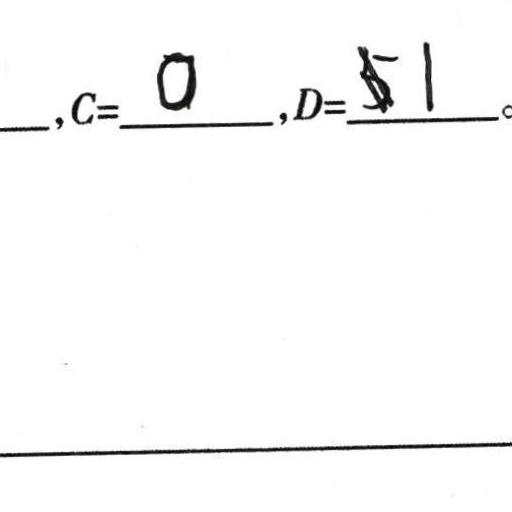 ,C=0,D=1。